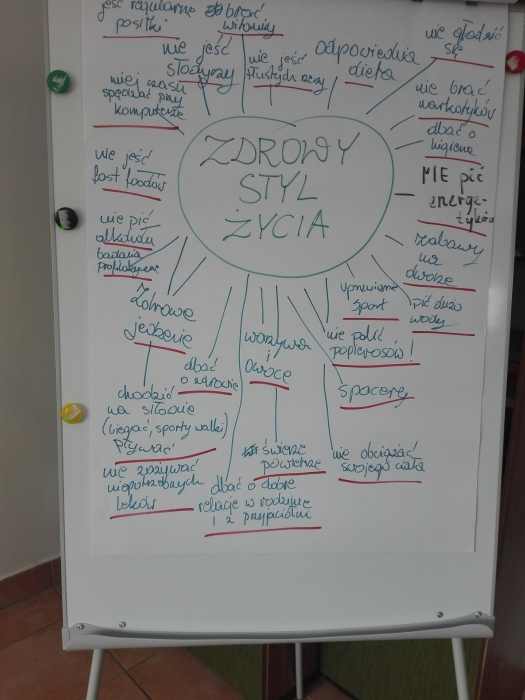 jeść regularne
posiłki
brać
witaminy
nie jeść
słodyczy
nie jeść
tłustych rzeczy
odpowiednia
dieta
nie głodzić
się
mniej czasu
spędzać przy
komputerze
nie brać
narkotyków
dbać o
higienę
nie jeść
fast foodów
ZDROWY
STYL
ŻYCIA
NIE pić
energe-
tyków
nie pić
alkoholu
badania
profilaktyczne
zabawy
na
dworze
zdrowe
jedzenie
uprawianie
sport
pić dużo
wody
dbać
o zdrowie
warzywa
i
owoce
nie palić
papierosów!
spacery
chodzić
na siłownie
(biegać, sporty walki)
pływać
świeże
powietrze
nie obciążać
swojego ciała
nie zażywać
niepotrzebnych
leków
dbać o dobre
relacje w rodzinie
i z przyjaciółmi